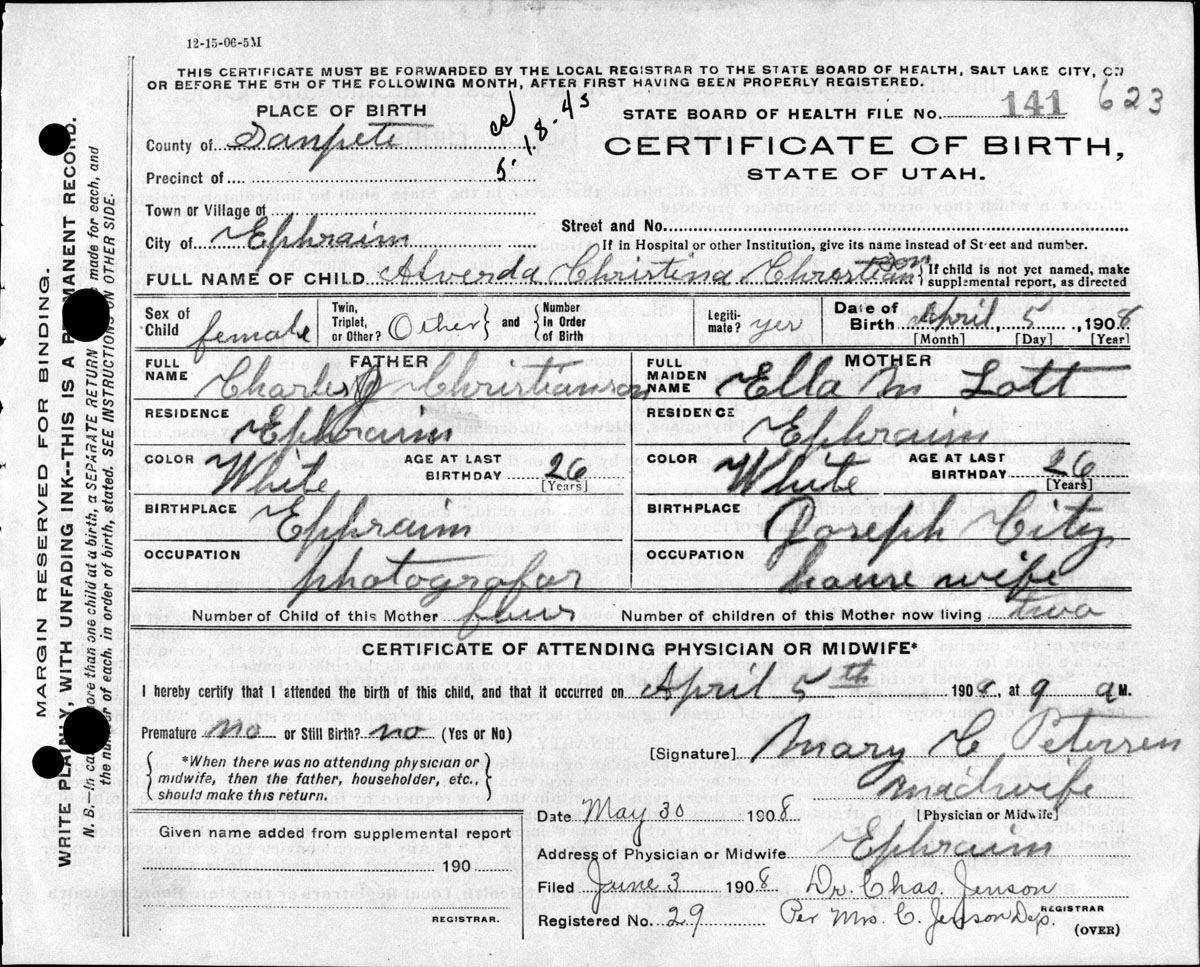 12-15-06-5M
THIS CERTIFICATE MUST BE FORWARDED BY THE LOCAL REGISTRAR TO THE STATE BOARD OF HEALTH, SALT LAKE CITY, ON
OR BEFORE THE 5TH OF THE FOLLOWING MONTH, AFTER FIRST HAVING BEEN PROPERLY REGISTERED.
PLACE OF BIRTH
STATE BOARD OF HEALTH FILE No. 141 623
County of Sanpete
5-18-45
CERTIFICATE OF BIRTH,
STATE OF UTAH.
Precinct of
Town or Village of
Street and No.
City of Ephraim
If in Hospital or other Institution, give its name instead of Street and number.
FULL NAME OF CHILD Alverda Christina Christianson
If child is not yet named, make
supplemental report, as directed
Sex of Child female
Twin, Triplet, or Other? Other and Number in Order of Birth
Legitimate? yes
Date of Birth April 5, 1908
[Month] [Day] [Year]
FATHER
FULL NAME Charles J Christianson
RESIDENCE Ephraim
COLOR White AGE AT LAST BIRTHDAY 26
[Years]
BIRTHPLACE Ephraim
OCCUPATION photografor
MOTHER
FULL MAIDEN NAME Ella M Lott
RESIDENCE Ephraim
COLOR White AGE AT LAST BIRTHDAY 26
[Years]
BIRTHPLACE Joseph City
OCCUPATION house wife
Number of Child of this Mother four Number of children of this Mother now living two
CERTIFICATE OF ATTENDING PHYSICIAN OR MIDWIFE*
I hereby certify that I attended the birth of this child, and that it occurred on April 5th 1908, at 9 a M.
Premature no or Still Birth? no (Yes or No)
[Signature] Mary C Petersen
midwife
[Physician or Midwife]
*When there was no attending physician or
midwife, then the father, householder, etc.,
should make this return.
Date May 30 1908
Given name added from supplemental report
190
REGISTRAR.
Address of Physician or Midwife Ephraim
Filed June 3 1908 Dr. Chas. Jenson
REGISTRAR
Registered No. 29 Per Mrs. C. Jenson Dep.
(OVER)
MARGIN RESERVED FOR BINDING.
WRITE PLAINLY, WITH UNFADING INK--THIS IS A PERMANENT RECORD.
N. B.--In case of more than one child at a birth, a SEPARATE RETURN made for each, and
the number of each, in order of birth, stated. SEE INSTRUCTIONS ON OTHER SIDE.